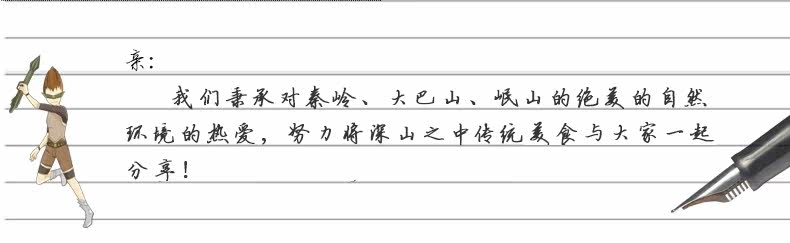 亲：
我们秉承对秦岭、大巴山、岷山的绝美的自然
环境的热爱，努力将深山之中传统美食与大家一起
分享！